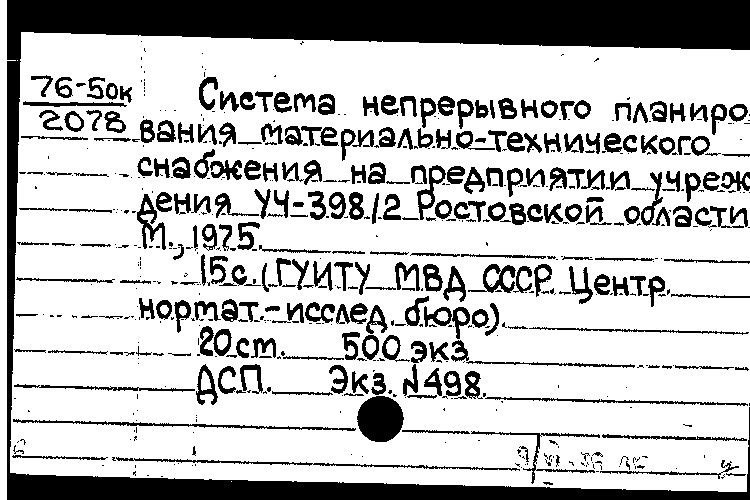 76-50к
2078
Система непрерывного планиро-
вания материально-технического
снабжения на предприятии учреж-
дения УЧ-398/2 Ростовской области
М., 1975.
15с. (ГУИТУ МВД СССР. Центр.
нормат.-исслед. бюро).
20 ст. 500 экз
ДСП. Экз. №498.